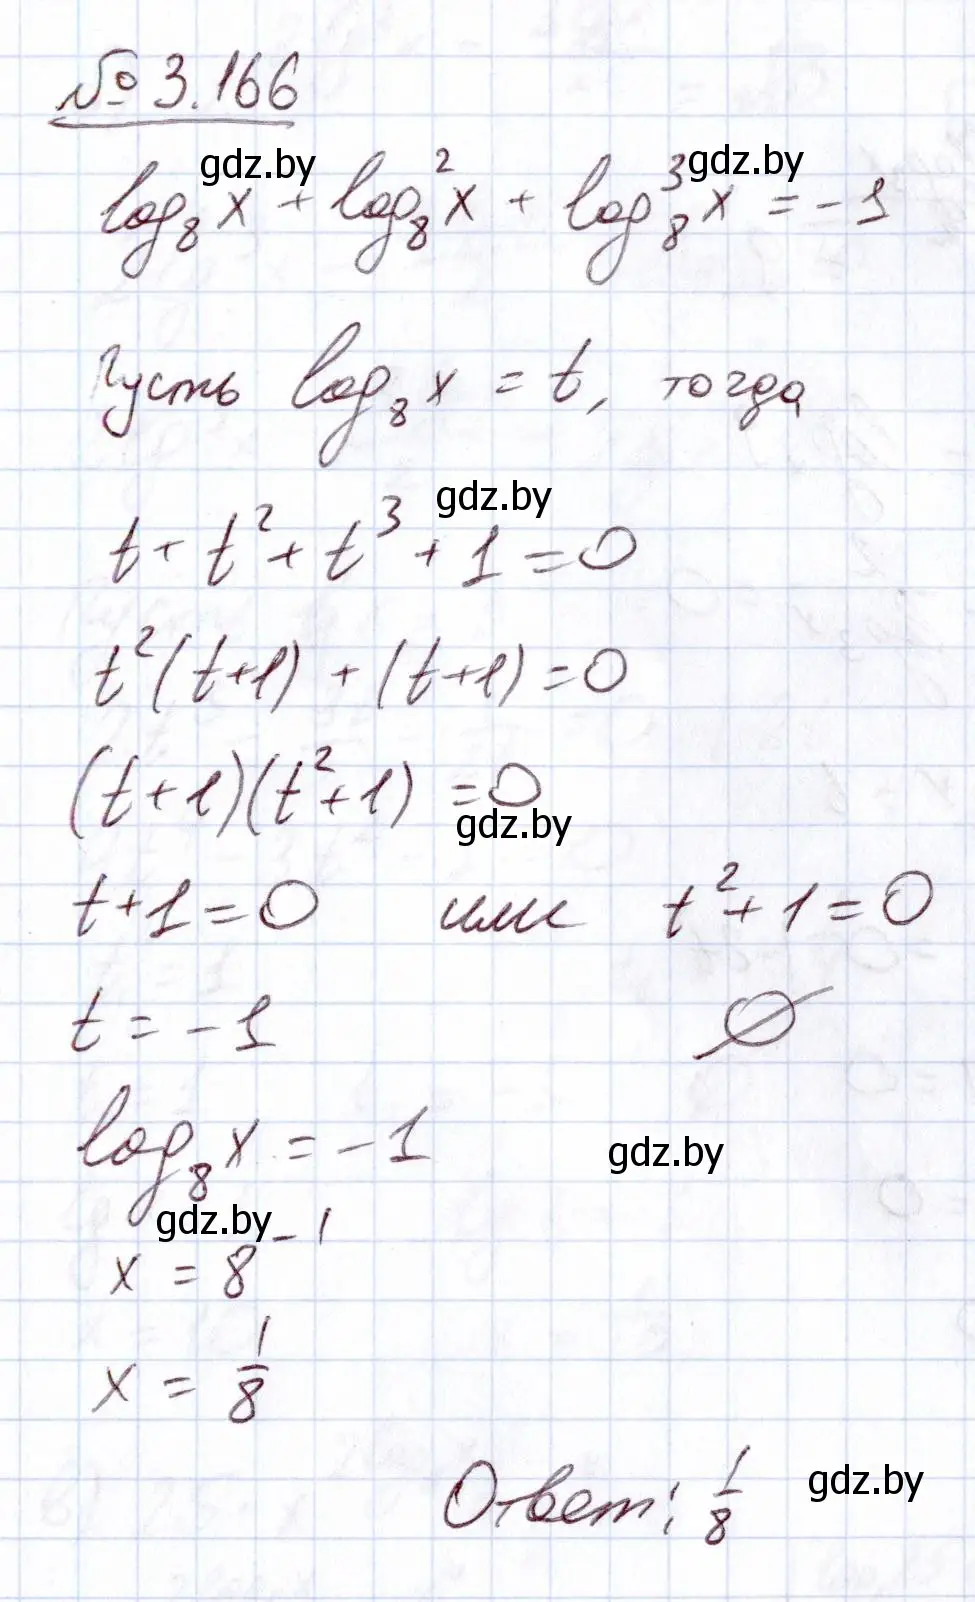 № 3.166
gdz.by gdz.by
log₈x + log₈²x + log₈³x = -1
Пусть log₈x = t, тогда
gdz.by
t + t² + t³ + 1 = 0
t²(t+1) + (t+1) = 0
(t+1)(t²+1) = 0
gdz.by
t+1=0 или t²+1=0
t = -1 ∅
log₈x = -1
gdz.by
gdz.by
x = 8⁻¹
x = 1/8
gdz.by
Ответ: 1/8